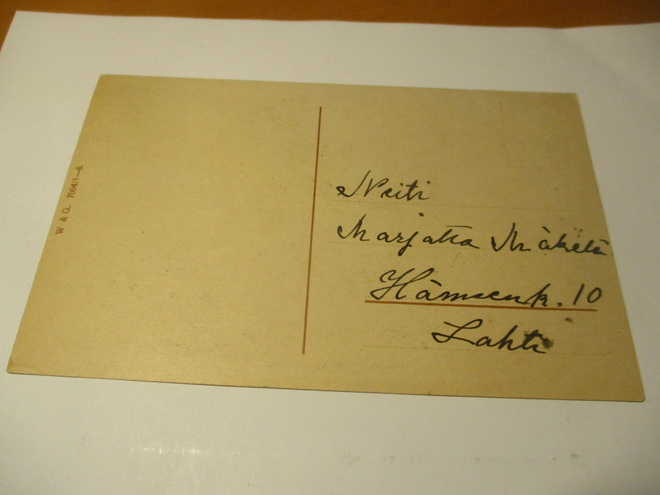 W & G. 7004/1-4.
Neiti
Marjatta Mäkelä
Hämeenk. 10
Lahti